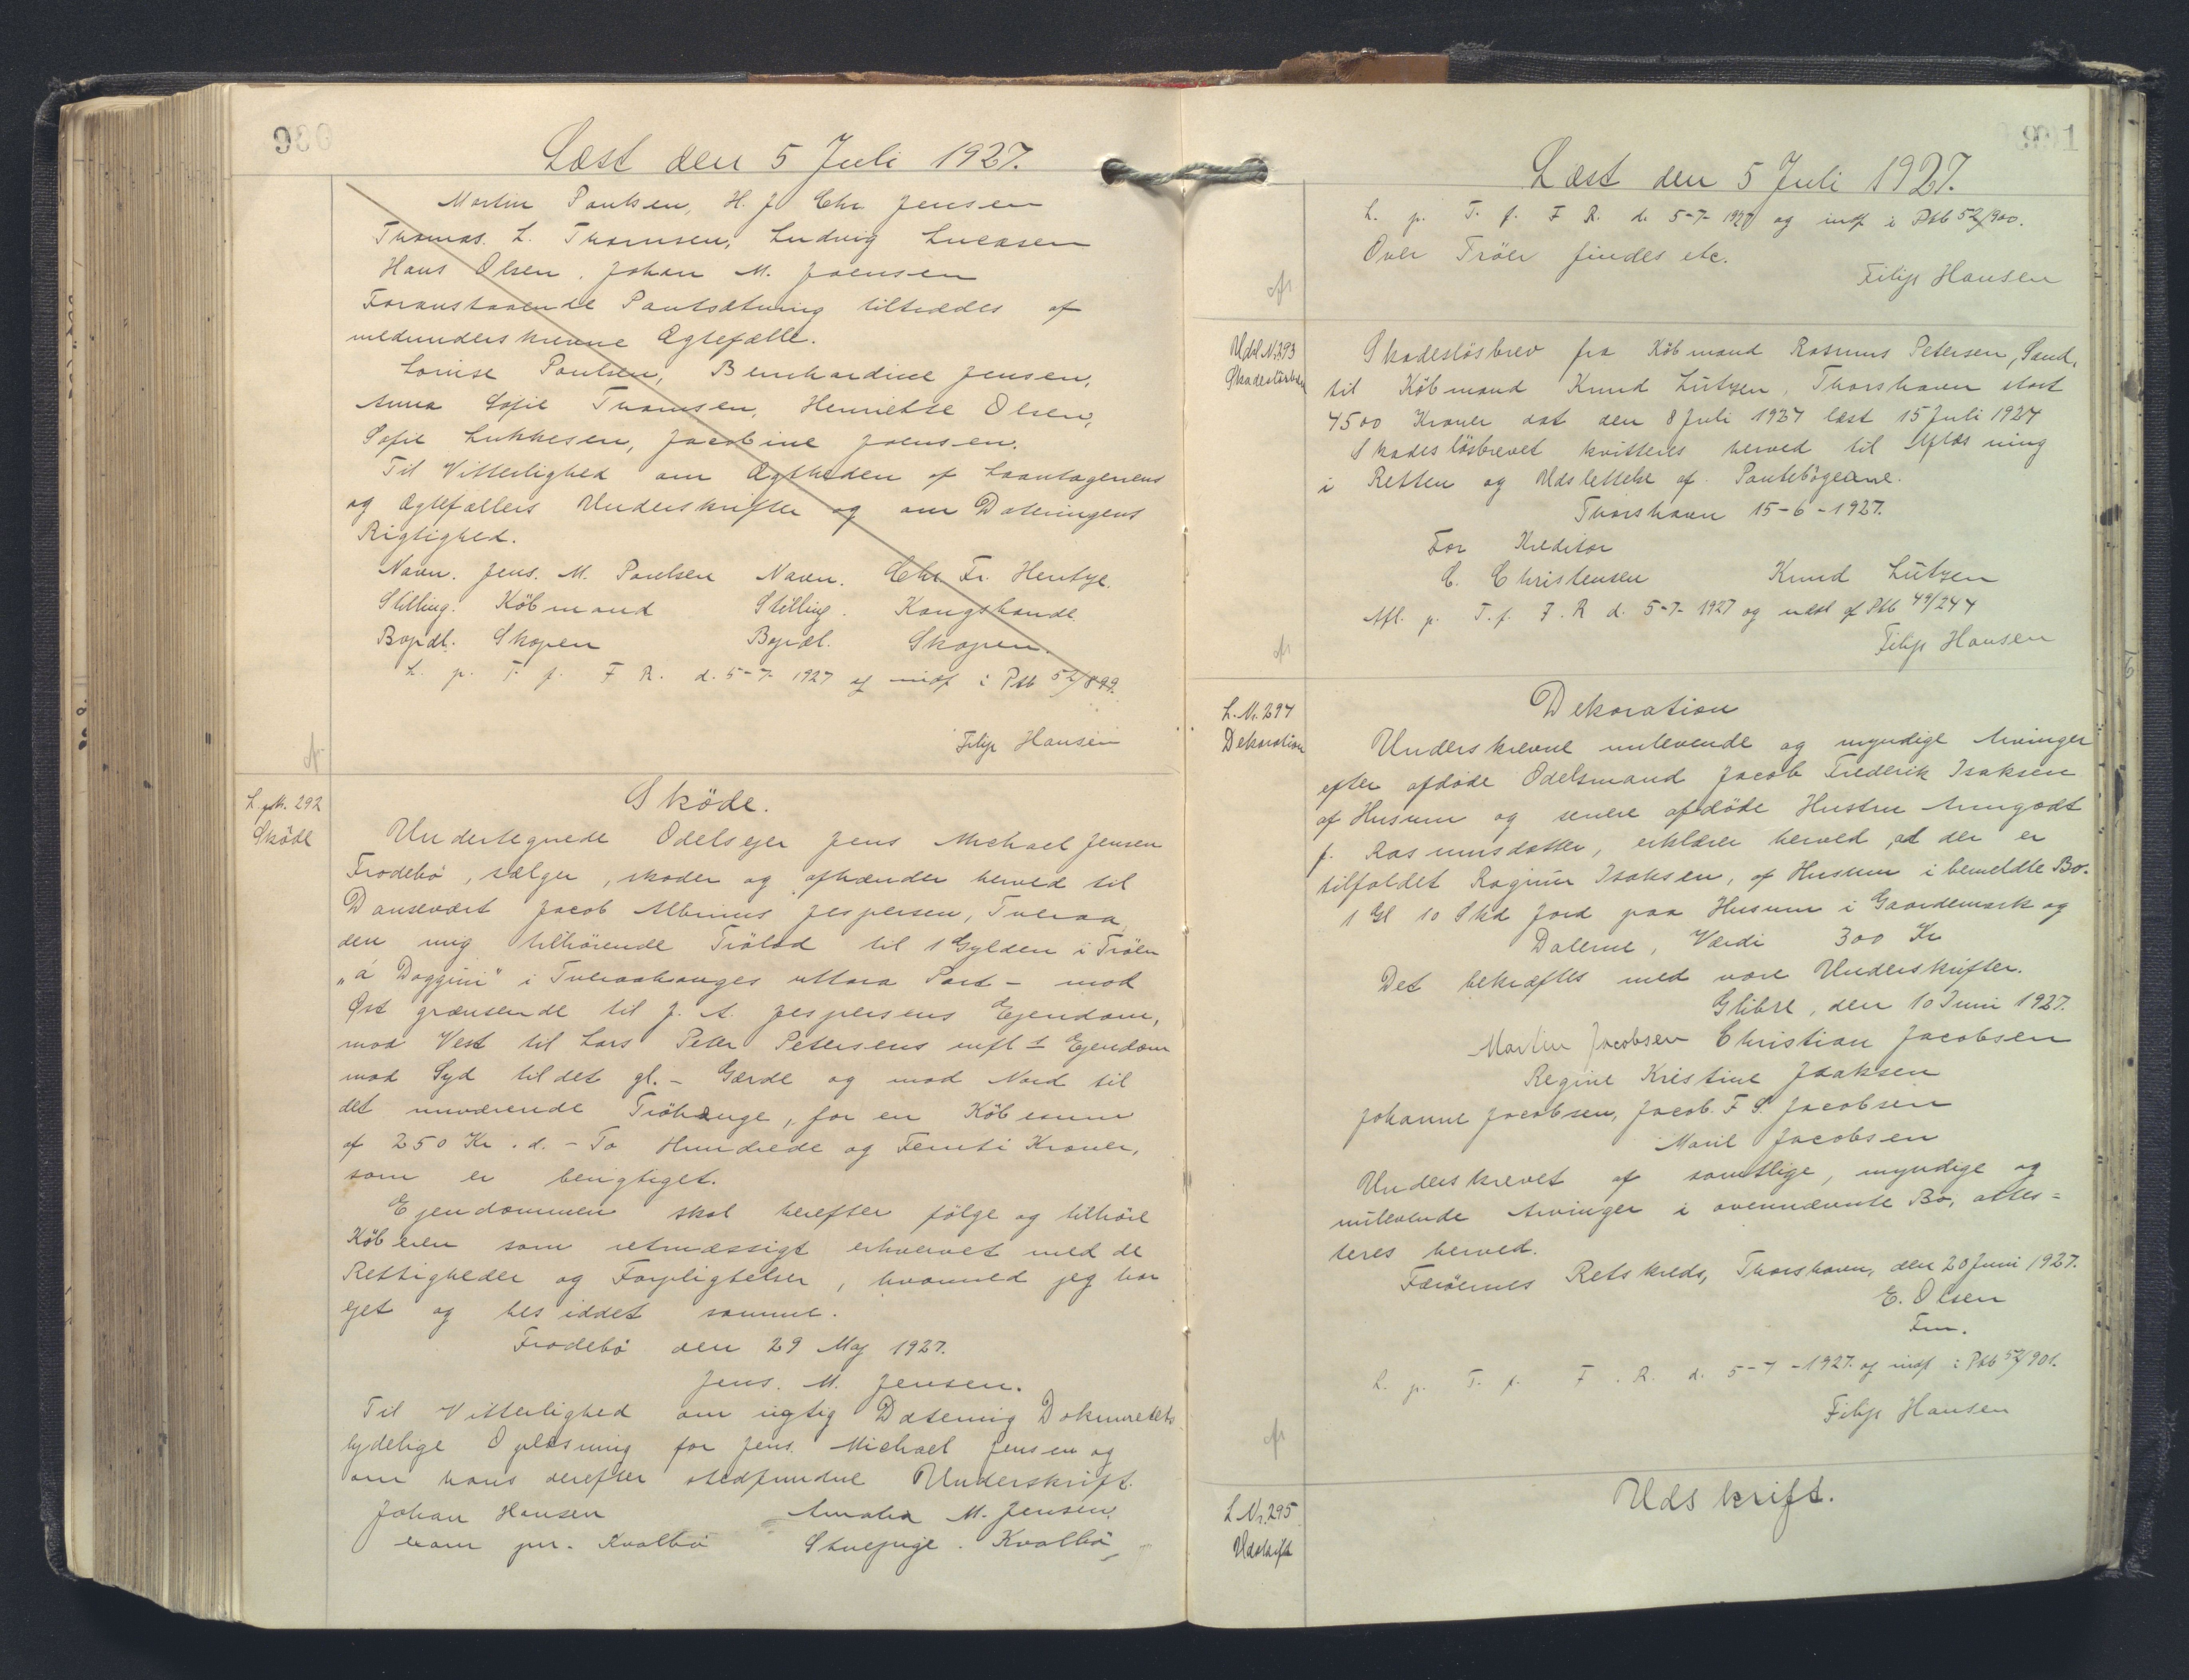 Læst den 5 Juli 1927.
Martin Poulsen, H. J. Chr. Jensen
Thomas. L. Thomsen, Ludvig Lucasen
Hans Olsen. Johan M. Joensen
Foranstaaende Pantsætning tiltrædes af
medunderskrevne Ægtefælle.
Louise Poulsen, Bernhardine Jensen,
Anna Sofie Thomsen, Henriette Olsen,
Sofie Lukkesen, Jacobine Joensen.
Til Vitterlighed om Ægtheden af Laantagernes
og Ægtefællers Underskrifter og om Dateringens
Rigtighed.
Navn. Jens. M. Poulsen Navn. Chr. Fr. Hentze
Stilling. Köbmand Stilling. Kongsbonde
Bopæl. Skopen Bopæl. Skopen.
L. p. T. f. F R. d. 5-7- 1927 og indf i Ptb 52/899.
Filip Hansen
L. 292
Sköde
Sköde.
Undertegnede Odelsejer Jens Michael Jensen
Frodebö, sælger, skøder og afhænder herved til
Dansevært Jacob Albinus Jespersen, Tveraa,
den mig tilhörende Trölod til 1 Gylden i Tröen
„á Doggini" i Tveraahauges uttara Part - mod
Øst grænsende til J. A. Jespersens Ejendom,
mod Vest til Lars Peter Petersens Ejendom
mod Syd til det gl. - Gærde og mod Nord til
det nuværende Tröhauge, for en Købesum
af 250 Kr. d. - To Hundrede og Femti Kroner,
som er berigtiget.
Ejendommen skal herefter fölge og tilhöre
Köberen som retmæssigt erhvervet med de
Rettigheder og Forpligtelser, hvormed jeg har
ejet og besiddet samme.
Frodebö den 29 Maj 1927.
Jens. M. Jensen.
Til Vitterlighed om rigtig Datering Dokumentets
lydelige Oplæsning for Jens. Michael Jensen og
om hans derefter stedfundne Underskrift.
Johan Hansen Amalia M. Jensen,
Kvalbö Stuepige. Kvalbö
Læst den 5 Juli 1927.
L. p. T. f. F R. d. 5-7- 1927 og indf i Ptb 52/900.
Over Tröer findes etc.
Filip Hansen
Udsl N. 293
Skadeslösbrev
Skadeslösbrev fra Köbmand Rasmus Petersen, Sand,
til Köbmand Knud Lützen, Thorshavn stort
4500 Kroner dat den 8 Juli 1924 læst 15 Juli 1924
Skadeslösbrevet kvitteres herved til Aflæsning
i Retten og Udslettelse af Pantebögerne.
Thorshavn 15-6-1927.
For Kreditor
C. Christensen Knud Lützen
Afl. p. T. f. F. R d. 5-7- 1927 og udsl af Ptb 49/244
Filip Hansen
L. Nr. 294
Dekoration
Dekoration
Underskrevne nulevende og myndige Arvinger
efter afdøde Odelsmand Jacob Frederik Isaksen
af Husum og senere afdöde Hustru Armgodt
f. Rasmusdatter, erklærer herved, at der er
tilfaldet Isaksen, af Husum i bemeldte Bo.
1 Gl 10 Skd Jord paa Husum i Gaardemark og
Dalerne, Værdi 300 Kr
Det bekræftes med vore Underskrifter.
Glibre, den 10 Juni 1927.
Martin Jacobsen Christian Jacobsen
Regine Kristine Isaksen
Johanne Jacobsen, Jacob. F. S. Jacobsen
Marie Jacobsen
Underskrevet af samtlige, myndige og
nulevende Arvinger i ovennævnte Bo, attes=
teres herved.
Færöernes Retskreds, Thorshavn, den 20 Juni 1927.
E. Olsen
Fm.
L. p. T. f. F. R. d. 5-7-1927. og indf i Ptb 52/901.
Filip Hansen
L Nr. 295
Udskrift
Udskrift.